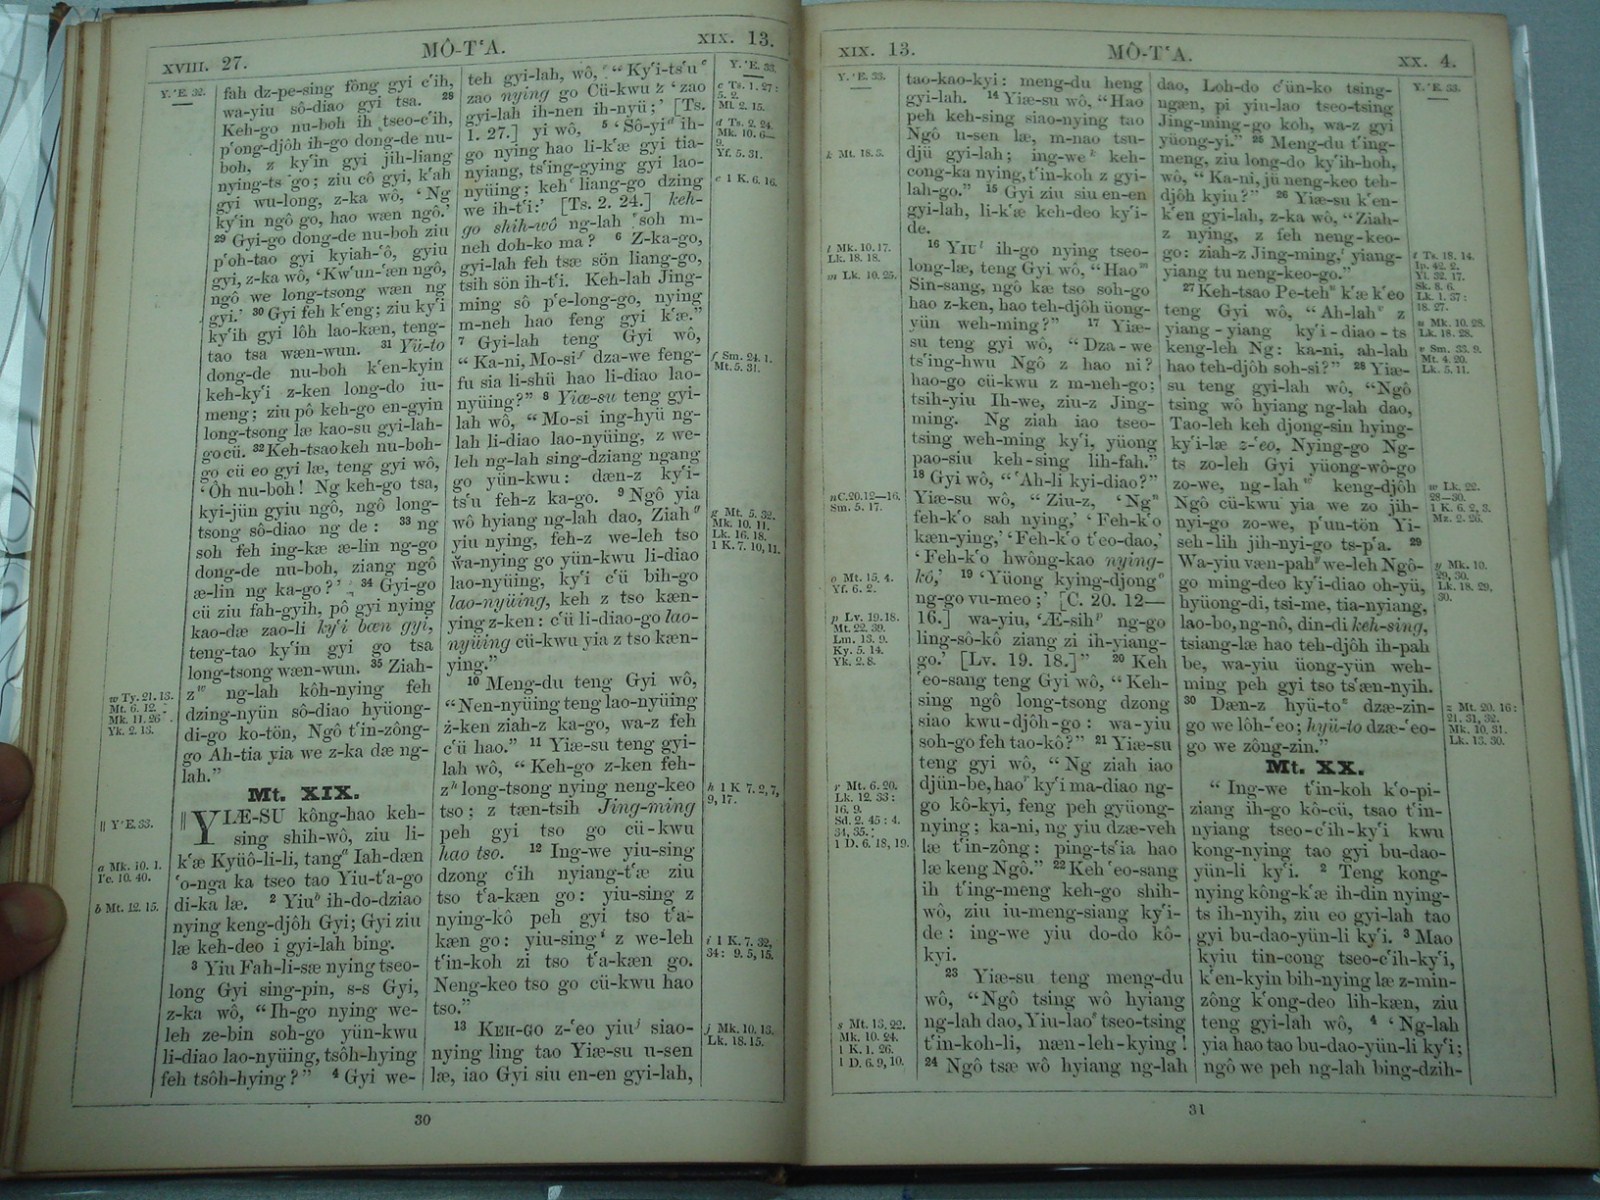 XVIII. 27.
MÔ-TʻA.
XIX. 13.
Y. ʻE. 32.
fah dz-pe-sing fông gyi cʻih,
wa-yiu sô-diao gyi tsa. 28
Keh-go nu-boh ih tseo-cʻih,
pʻong-djôh ih-go dong-de nu-
boh, z kyʻin gyi jih-liang
nying-ts go; ziu cô gyi, kʻah
gyi wu-long, z-ka wô, ʻNg
kyʻin ngô go, hao wæn ngô.ʼ
29 Gyi-go dong-de nu-boh ziu
pʻoh-tao gyi kyiah-ʻô, gyiu
gyi, z-ka wô, ʻKwʻun-ʻæn ngô,
ngô we long-tsong wæn ng
gyi.ʼ 30 Gyi feh kʻeng; ziu kyʻi
kyʻih gyi lôh lao-kæn, teng-
tao tsa wæn-wun. 31 Yü-to
dong-de nu-boh kʻen-kyin
keh-kyʻi z-ken long-do iu-
meng; ziu pô keh-go en-gyin
long-tsong læ kao-su gyi-lah-
go cü. 32 Keh-tsao keh nu-boh-
go cü eo gyi læ, teng gyi wô,
ʻÔh nu-boh! Ng keh-go tsa,
kyi-jün gyiu ngô, ngô long-
tsong sô-diao ng de: 33 ng
soh feh ing-kæ æ-lin ng-go
dong-de nu-boh, ziang ngô
æ-lin ng ka-go?ʼ 34 Gyi-go
cü ziu fah-gyih, pô gyi nying
kao-dæ zao-li kyʻi bæn gyi,
teng-tao kyʻin gyi go tsa
long-tsong wæn-wun. 35 Ziah-
z w ng-lah kôh-nying feh
dzing-nyün sô-diao hyüong-
di-go ko-tön, Ngô tʻin-zông-
go Ah-tia yia we z-ka dæ ng-
lah.”
w Ty. 21. 13.
Mt. 6. 12.
Mk. 11. 26
Yk. 2. 13.
Mt. XIX.
|| YLÆ-SU kông-hao keh-
sing shih-wô, ziu li-
kʻæ Kyüô-li-li, tang a Iah-dæn
ʻo-nga ka tseo tao Yiu-tʻa-go
di-ka læ. 2 Yiu b ih-do-dziao
nying keng-djôh Gyi; Gyi ziu
læ keh-deo i gyi-lah bing.
3 Yiu Fah-li-sæ nying tseo-
long Gyi sing-pin, s-s Gyi,
z-ka wô, “Ih-go nying we-
leh ze-bin soh-go yün-kwu
li-diao lao-nyüing, tsôh-hying
feh tsôh-hying?” 4 Gyi we-
|| YʻE. 33.
a Mk. 10. 1.
b Mt. 12. 15.
teh gyi-lah, wô, “Kyʻi-tsʻu c
zao nying go Cü-kwu z ʻzao
gyi-lah ih-nen ih-nyü;ʼ [Ts.
1. 27.] yi wô, 5 ʻSô-yi d ih-
go nying hao li-kʻæ gyi tia-
nyiang, tsʻing-gying gyi lao-
nyüing; keh e liang-go dzing
we ih-tʻi:ʼ [Ts. 2. 24.] keh-
go shih-wô ng-lah soh m-
neh doh-ko ma? 6 Z-ka-go,
gyi-lah feh tsæ sön liang-go,
tsih sön ih-tʻi. Keh-lah Jing-
ming sô pʻe-long-go, nying
m-neh hao feng gyi kʻæ.”
7 Gyi-lah teng Gyi wô,
“Ka-ni, Mo-si f dza-we feng-
fu sia li-shü hao li-diao lao-
nyüing?” 8 Yiæ-su teng gyi-
lah wô, “Mo-si ing-hyü ng-
lah li-diao lao-nyüing, z we-
leh ng-lah sing-dziang ngang
go yün-kwu: dæn-z kyʻi-
tsʻu feh-z ka-go. 9 Ngô yia
wô hyiang ng-lah dao, Ziah g
yiu nying, feh-z we-leh tso
wa-nying go yün-kwu li-diao
lao-nyüing, kyʻi cʻü bih-go
lao-nyüing, keh z tso kæn-
ying z-ken: cʻü li-diao-go lao-
nyüing cü-kwu yia z tso kæn-
ying.”
10 Meng-du teng Gyi wô,
“Nen-nyüing teng lao-nyüing
z-ken ziah-z ka-go, wa-z feh
cʻü hao.” 11 Yiæ-su teng gyi-
lah wô, “Keh-go z-ken feh-
z h long-tsong nying neng-keo
tso; z tæn-tsih Jing-ming
peh gyi tso go cü-kwu
hao tso. 12 Ing-we yiu-sing
dzong cʻih nyiang-tʻæ ziu
tso tʻa-kæn go: yiu-sing z
nying-kô peh gyi tso tʻa-
kæn go: yiu-sing i z we-leh
tʻin-koh zi tso tʻa-kæn go.
Neng-keo tso go cü-kwu hao
tso.”
13 KEH-GO z-ʻeo yiu j siao-
nying ling tao Yiæ-su u-sen
læ, iao Gyi siu en-en gyi-lah,
Y. ʻE. 33.
c Ts. 1. 27:
5. 2.
Ml. 2. 15.
d Ts. 2. 24.
Mk. 10. 6—
9.
Yf. 5. 31.
e 1 K. 6. 16.
f Sm. 24. 1.
Mt. 5. 31.
g Mt. 5. 32.
Mk. 10. 11.
Lk. 16. 18.
1 K. 7. 10, 11.
h 1 K 7. 2, 7,
9, 17.
i 1 K. 7. 32,
34: 9. 5, 15.
j Mk. 10. 13.
Lk. 18. 15.
30
XIX. 13.
MÔ-TʻA.
XX. 4.
Y. ʻE. 33.
k Mt. 18. 3.
l Mk. 10. 17.
Lk. 18. 18.
m Lk. 10. 25.
n C. 20. 12—16.
Sm. 5. 17.
o Mt. 15. 4.
Yf. 6. 2.
p Lv. 19. 18.
Mt. 22. 39.
Lm. 13. 9.
Ky. 5. 14.
Yk. 2. 8.
r Mt. 6. 20.
Lk. 12. 33:
16. 9.
Sd. 2. 45: 4.
34, 35.:
1 D. 6. 18, 19.
s Mt. 13. 22.
Mk. 10. 24.
1 K. 1. 26.
1 D. 6. 9, 10.
tao-kao-kyi: meng-du heng
gyi-lah. 14 Yiæ-su wô, “Hao
peh keh-sing siao-nying tao
Ngô u-sen læ, m-nao tsu-
djü gyi-lah; ing-we k keh-
cong-ka nying, tʻin-koh z gyi-
lah-go.” 15 Gyi ziu siu en-en
gyi-lah, li-kʻæ keh-deo kyʻi-
de.
16 YIU l ih-go nying tseo-
long-læ, teng Gyi wô, “Hao m
Sin-sang, ngô kæ tso soh-go
hao z-ken, hao teh-djôh üong-
yün weh-ming?” 17 Yiæ-
su teng gyi wô, “Dza-we
tsʻing-hwu Ngô z hao ni?
hao-go cü-kwu z m-neh-go;
tsih-yiu Ih-we, ziu-z Jing-
ming. Ng ziah iao tseo-
tsing weh-ming kyʻi, yüong
pao-siu keh-sing lih-fah.”
18 Gyi wô, “ʻAh-li kyi-diao?”
Yiæ-su wô, “Ziu-z, ʻNg n
feh-kʻo sah nying,ʼ ʻFeh-kʻo
kæn-ying,ʼ ʻFeh-kʻo tʻeo-dao,ʼ
ʻFeh-kʻo hwông-kao nying-
kô,ʼ 19 ʻYüong kying-djong o
ng-go vu-meo;ʼ [C. 20. 12—
16.] wa-yiu, ʻÆ-sih p ng-go
ling-sô-kô ziang zi ih-yiang-
go.ʼ [Lv. 19. 18.]” 20 Keh
ʻeo-sang teng Gyi wô, “Keh-
sing ngô long-tsong dzong
siao kwu-djôh-go: wa-yiu
soh-go feh tao-kô?” 21 Yiæ-su
teng gyi wô, “Ng ziah iao
djün-be, hao r kyʻi ma-diao ng-
go kô-kyi, feng peh gyüong-
nying; ka-ni, ng yiu dzæ-veh
læ tʻin-zông: ping-tsʻia hao
læ keng Ngô.” 22 Keh ʻeo-sang
ih tʻing-meng keh-go shih-
wô, ziu iu-meng-siang kyʻi-
de: ing-we yiu do-do kô-
kyi.
23 Yiæ-su teng meng-du
wô, “Ngô tsing wô hyiang
ng-lah dao, Yiu-lao s tseo-tsing
tʻin-koh-li, næn-leh-kying!
24 Ngô tsæ wô hyiang ng-lah
dao, Loh-do cʻün-ko tsing-
ngæn, pi yiu-lao tseo-tsing
Jing-ming-go koh, wa-z gyi
yüong-yi.” 25 Meng-du tʻing-
meng, ziu long-do kyʻih-hoh,
wô, “Ka-ni, jü neng-keo teh-
djôh kyiu?” 26 Yiæ-su kʻen-
kʻen gyi-lah, z-ka wô, “Ziah-
z nying, z feh neng-keo-
go: ziah-z Jing-ming, t yiang-
yiang tu neng-keo-go.”
27 Keh-tsao Pe-teh u kʻæ kʻeo
teng Gyi wô, “Ah-lah v z
yiang-yiang kyʻi-diao-ts
keng-leh Ng: ka-ni, ah-lah
hao teh-djôh soh-si?” 28 Yiæ-
su teng gyi-lah wô, “Ngô
tsing wô hyiang ng-lah dao,
Tao-leh keh djong-sin hying-
kyʻi-læ z-ʻeo, Nying-go Ng-
ts zo-leh Gyi yüong-wô-go
zo-we, ng-lah w keng-djôh
Ngô cü-kwu yia we zo jih-
nyi-go zo-we, pʻun-tön Yi-
seh-lih jih-nyi-go ts-pʻa. 29
Wa-yiu væn-pah y we-leh Ngô-
go ming-deo kyʻi-diao oh-yü,
hyüong-di, tsi-me, tia-nyiang,
lao-bo, ng-nô, din-di keh-sing,
tsiang-læ hao teh-djôh ih-pah
be, wa-yiu üong-yün weh-
ming peh gyi tso tsʻæn-nyih.
30 Dæn-z hyü-to z dzæ-zin-
go we lôh-ʻeo; hyü-to dzæ-ʻeo-
go we zông-zin.”
Mt. XX.
“Ing-we tʻin-koh kʻo-pi-
ziang ih-go kô-cü, tsao tʻin-
nyiang tseo-cʻih-kyʻi kwu
kong-nying tao gyi bu-dao-
yün-li kyʻi. 2 Teng kong-
nying kông-kʻæ ih-din nying-
ts ih-nyih, ziu eo gyi-lah tao
gyi bu-dao-yün-li kyʻi. 3 Mao
kyiu tin-cong tseo-cʻih-kyʻi,
kʻen-kyin bih-nying læ z-min-
zông kʻong-deo lih-kæn, ziu
teng gyi-lah wô, 4 ʻNg-lah
yia hao tao bu-dao-yün-li kyʻi;
ngô we peh ng-lah bing-dzih-
Y. ʻE. 33.
t Ts. 18. 14.
Ip. 42. 2.
Yl. 32. 17.
Sk. 8. 6.
Lk. 1. 37:
18. 27.
u Mk. 10. 28.
Lk. 18. 28.
v Sm. 33. 9.
Mt. 4. 20.
Lk. 5. 11.
w Lk. 22.
28—30.
1 K. 6. 2, 3.
Mz. 2. 26.
y Mk. 10.
29, 30.
Lk. 18. 29,
30.
z Mt. 20. 16:
21. 31, 32.
Mk. 10. 31.
Lk. 13. 30.
31